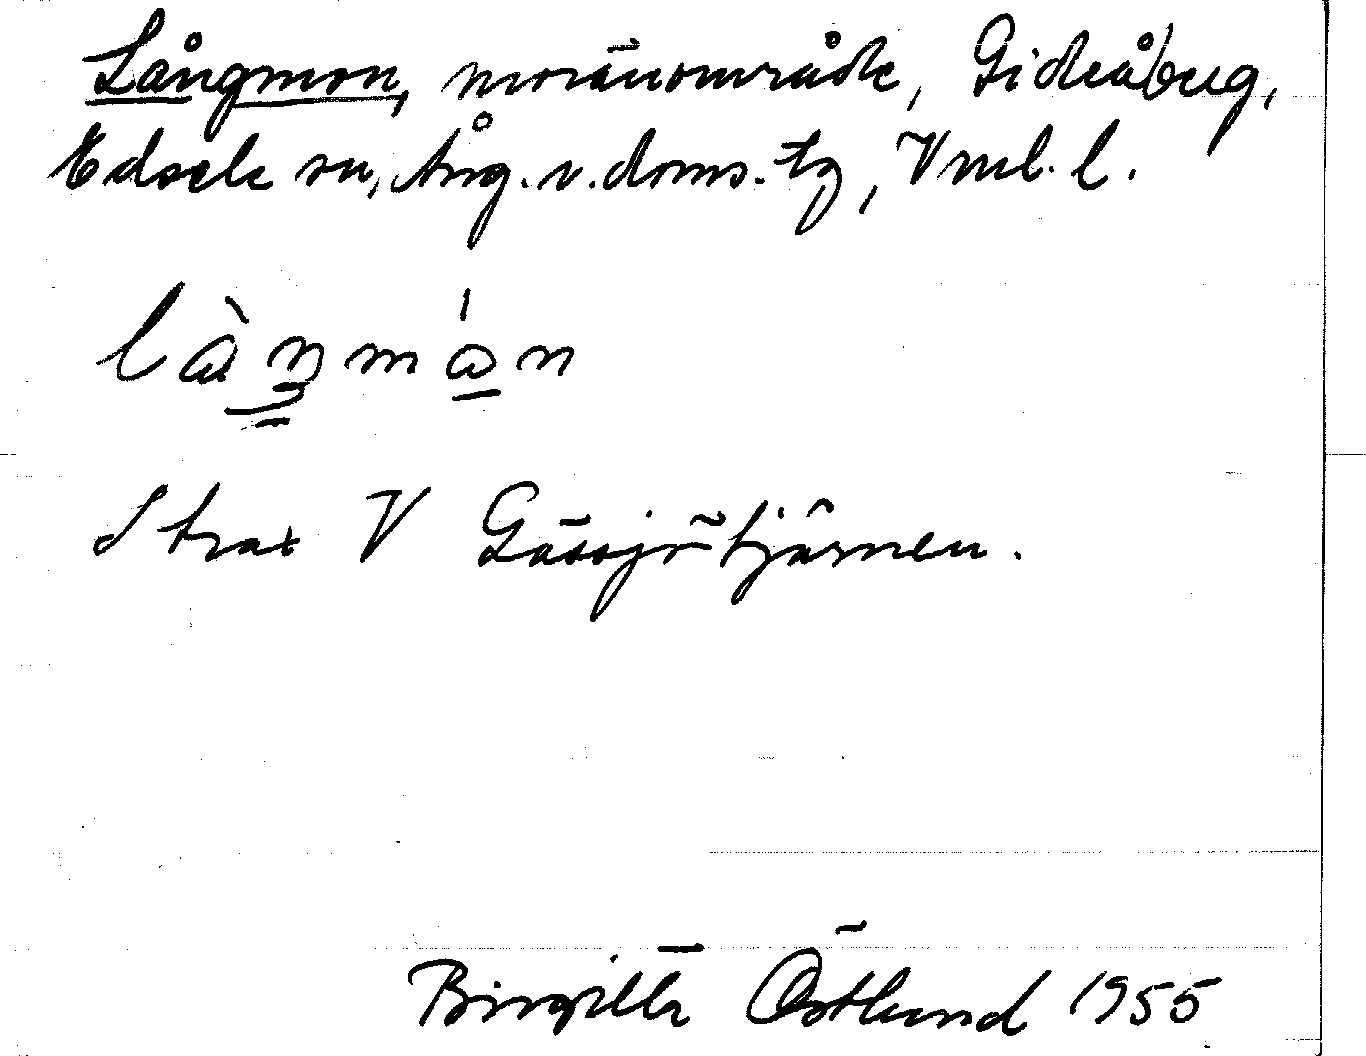 Långmon, moränområde, Gideåberg,
Edsele sn, Ång. v. doms. tg, Vnl. l.
Strax V Gässjötjärnen.
Birgitta Östlund 1955